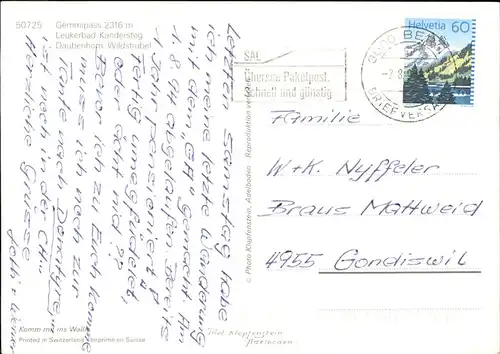 50725
Gemmipass 2316 m
Leukerbad Kandersteg
Daubenhorn Wildstrubel
Letzten Samstag habe
ich meine letzte Wanderung
mit dem "GA" gemacht. Am
1.8.94 abgelaufen. Bereits
1 Jahr pensioniert!
Fertig umegfudelet,
oder ächt nid??
Bevor ich zu Euch komme
muss ich noch zur
Tante nach
ist noch in der "CH"
Herzliche Grüsse
Komm mit ins Wallis
Printed in Switzerland Imprimé en Suisse
© Photo Klopfenstein, Adelboden Reproduction
Phot Klopfenstein
Adelboden
SAL
Übersee-Paketpost,
schnell und günstig
3000 BERN
BRIEFVERSAND
Helvetia 60
Familie
W+K. Nyffeler
Braus Mattweid
4955 Gondiswil